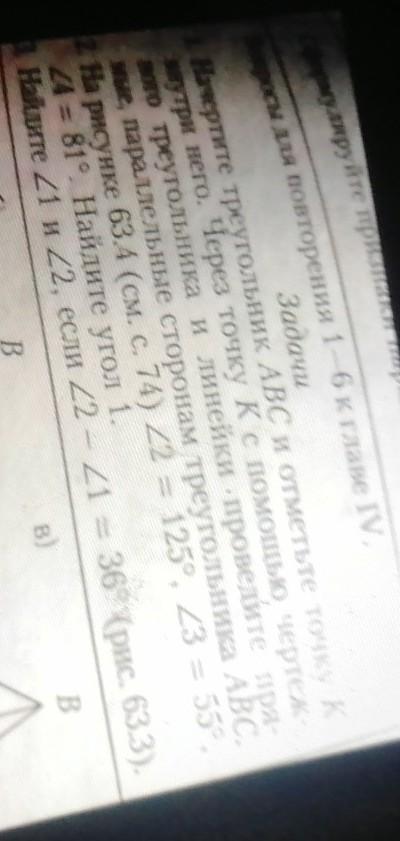 Сформулируйте признаки
Вопросы для повторения 1–6 к главе IV.
Задачи
1. Начертите треугольник ABC и отметьте точку K
внутри него. Через точку K с помощью чертеж-
ного треугольника и линейки проведите пря-
мые, параллельные сторонам треугольника ABC.
2. На рисунке 63.4 (см. с. 74) ∠2 = 125°, ∠3 = 55°,
∠4 = 81°. Найдите угол 1.
3. Найдите ∠1 и ∠2, если ∠2 − ∠1 = 36° (рис. 63.3).
в)
B
B